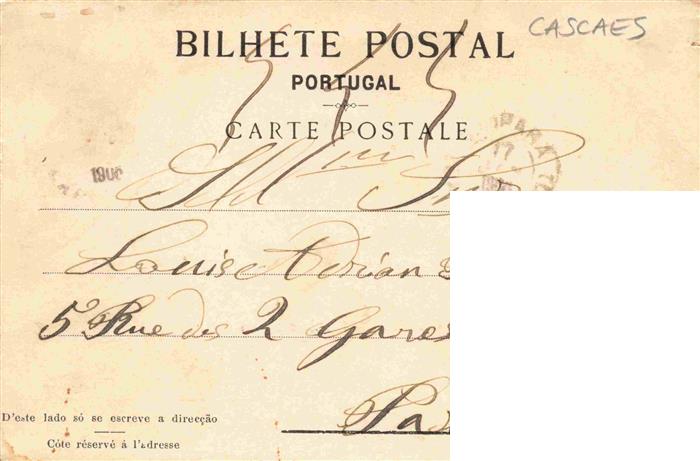 CASCAES
BILHETE POSTAL
PORTUGAL
CARTE POSTALE
1906
Louis Adrian
5 Rue des 2 Gares
Pa
D'este lado só se escreve a direcção
Côte réservé á l'adresse